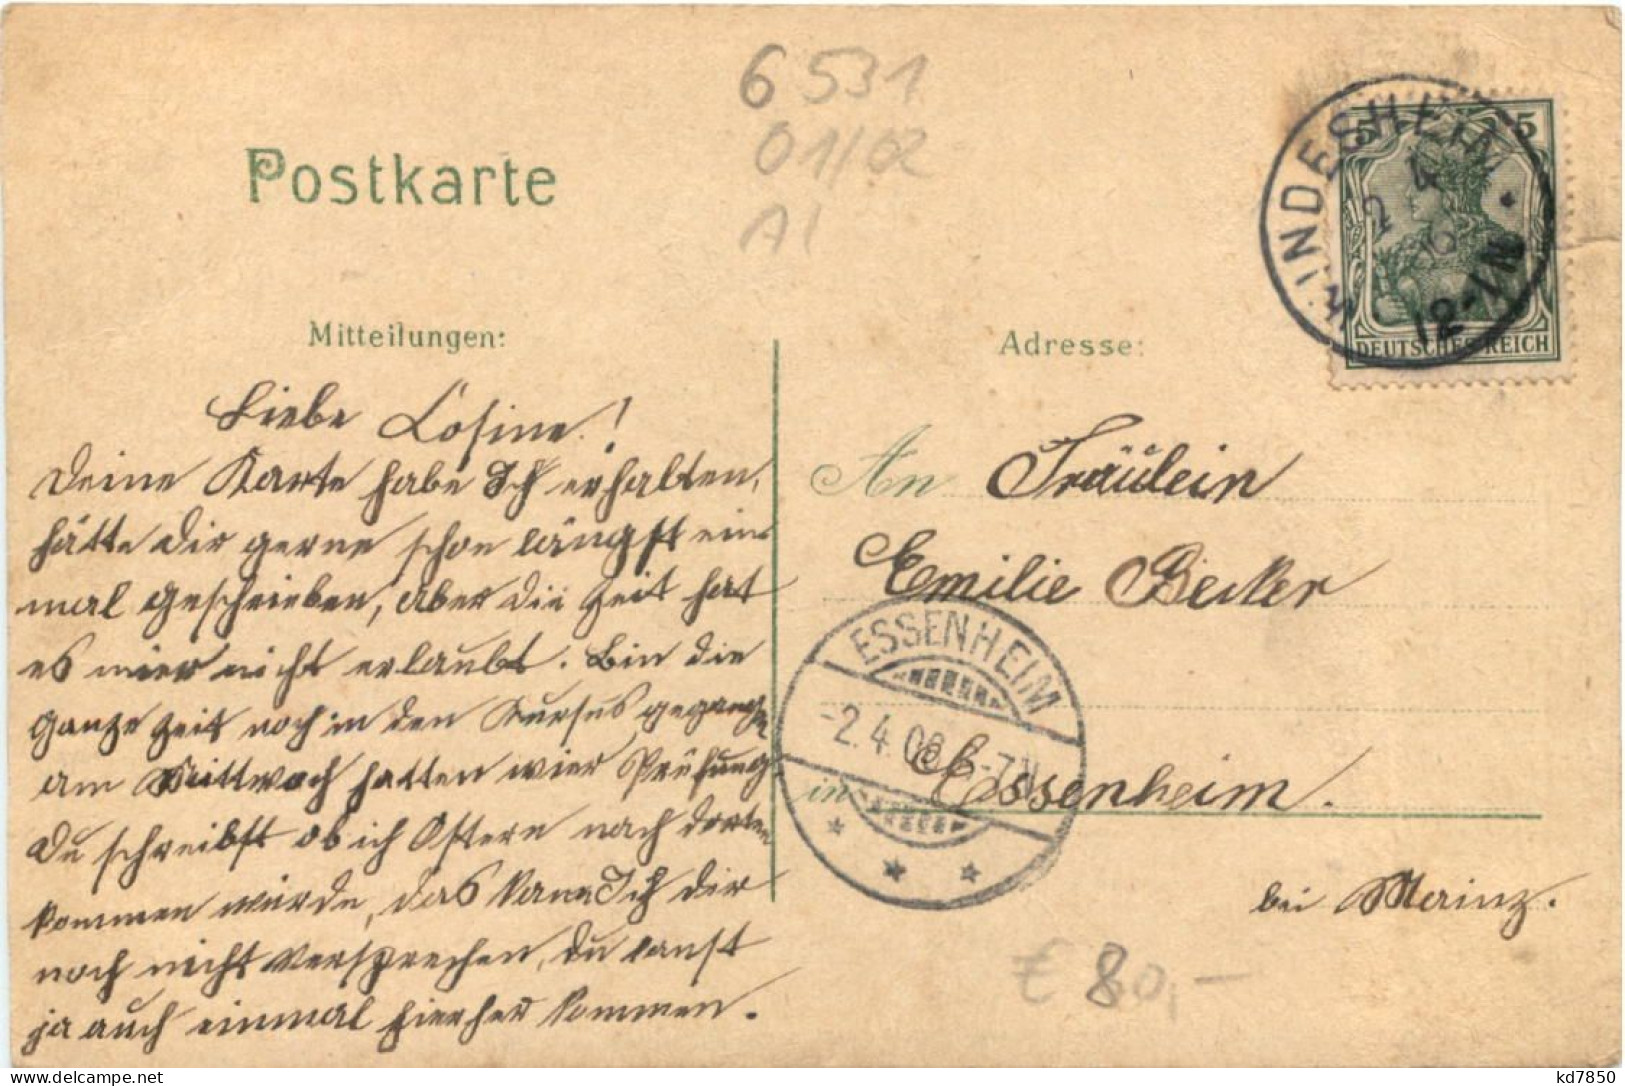 6531
01/02
A1
Postkarte
WINDESHEIM
2 4
12-1N
5 5
DEUTSCHES REICH
Mitteilungen:
Adresse:
Liebe Cosine!
Deine Karte habe Ich erhalten,
hätte dir gerne schon längst ein-
mal geschrieben, aber die Zeit hat
es mier nicht erlaubt. Bin die
ganze Zeit noch in den Kursus gegangen
am Mittwoch hatten wier Prüfung
Du schreibst ob ich Ostern nach dorten
kommen würde, das kann Ich dir
noch nicht versprechen, du kanst
ja auch einmal hierher kommen.
An Fräulein
Emilie Becker
ESSENHEIM
-2.4.08. 6-7N
in Essenheim.
bei Mainz.
€ 80,-
kd7850